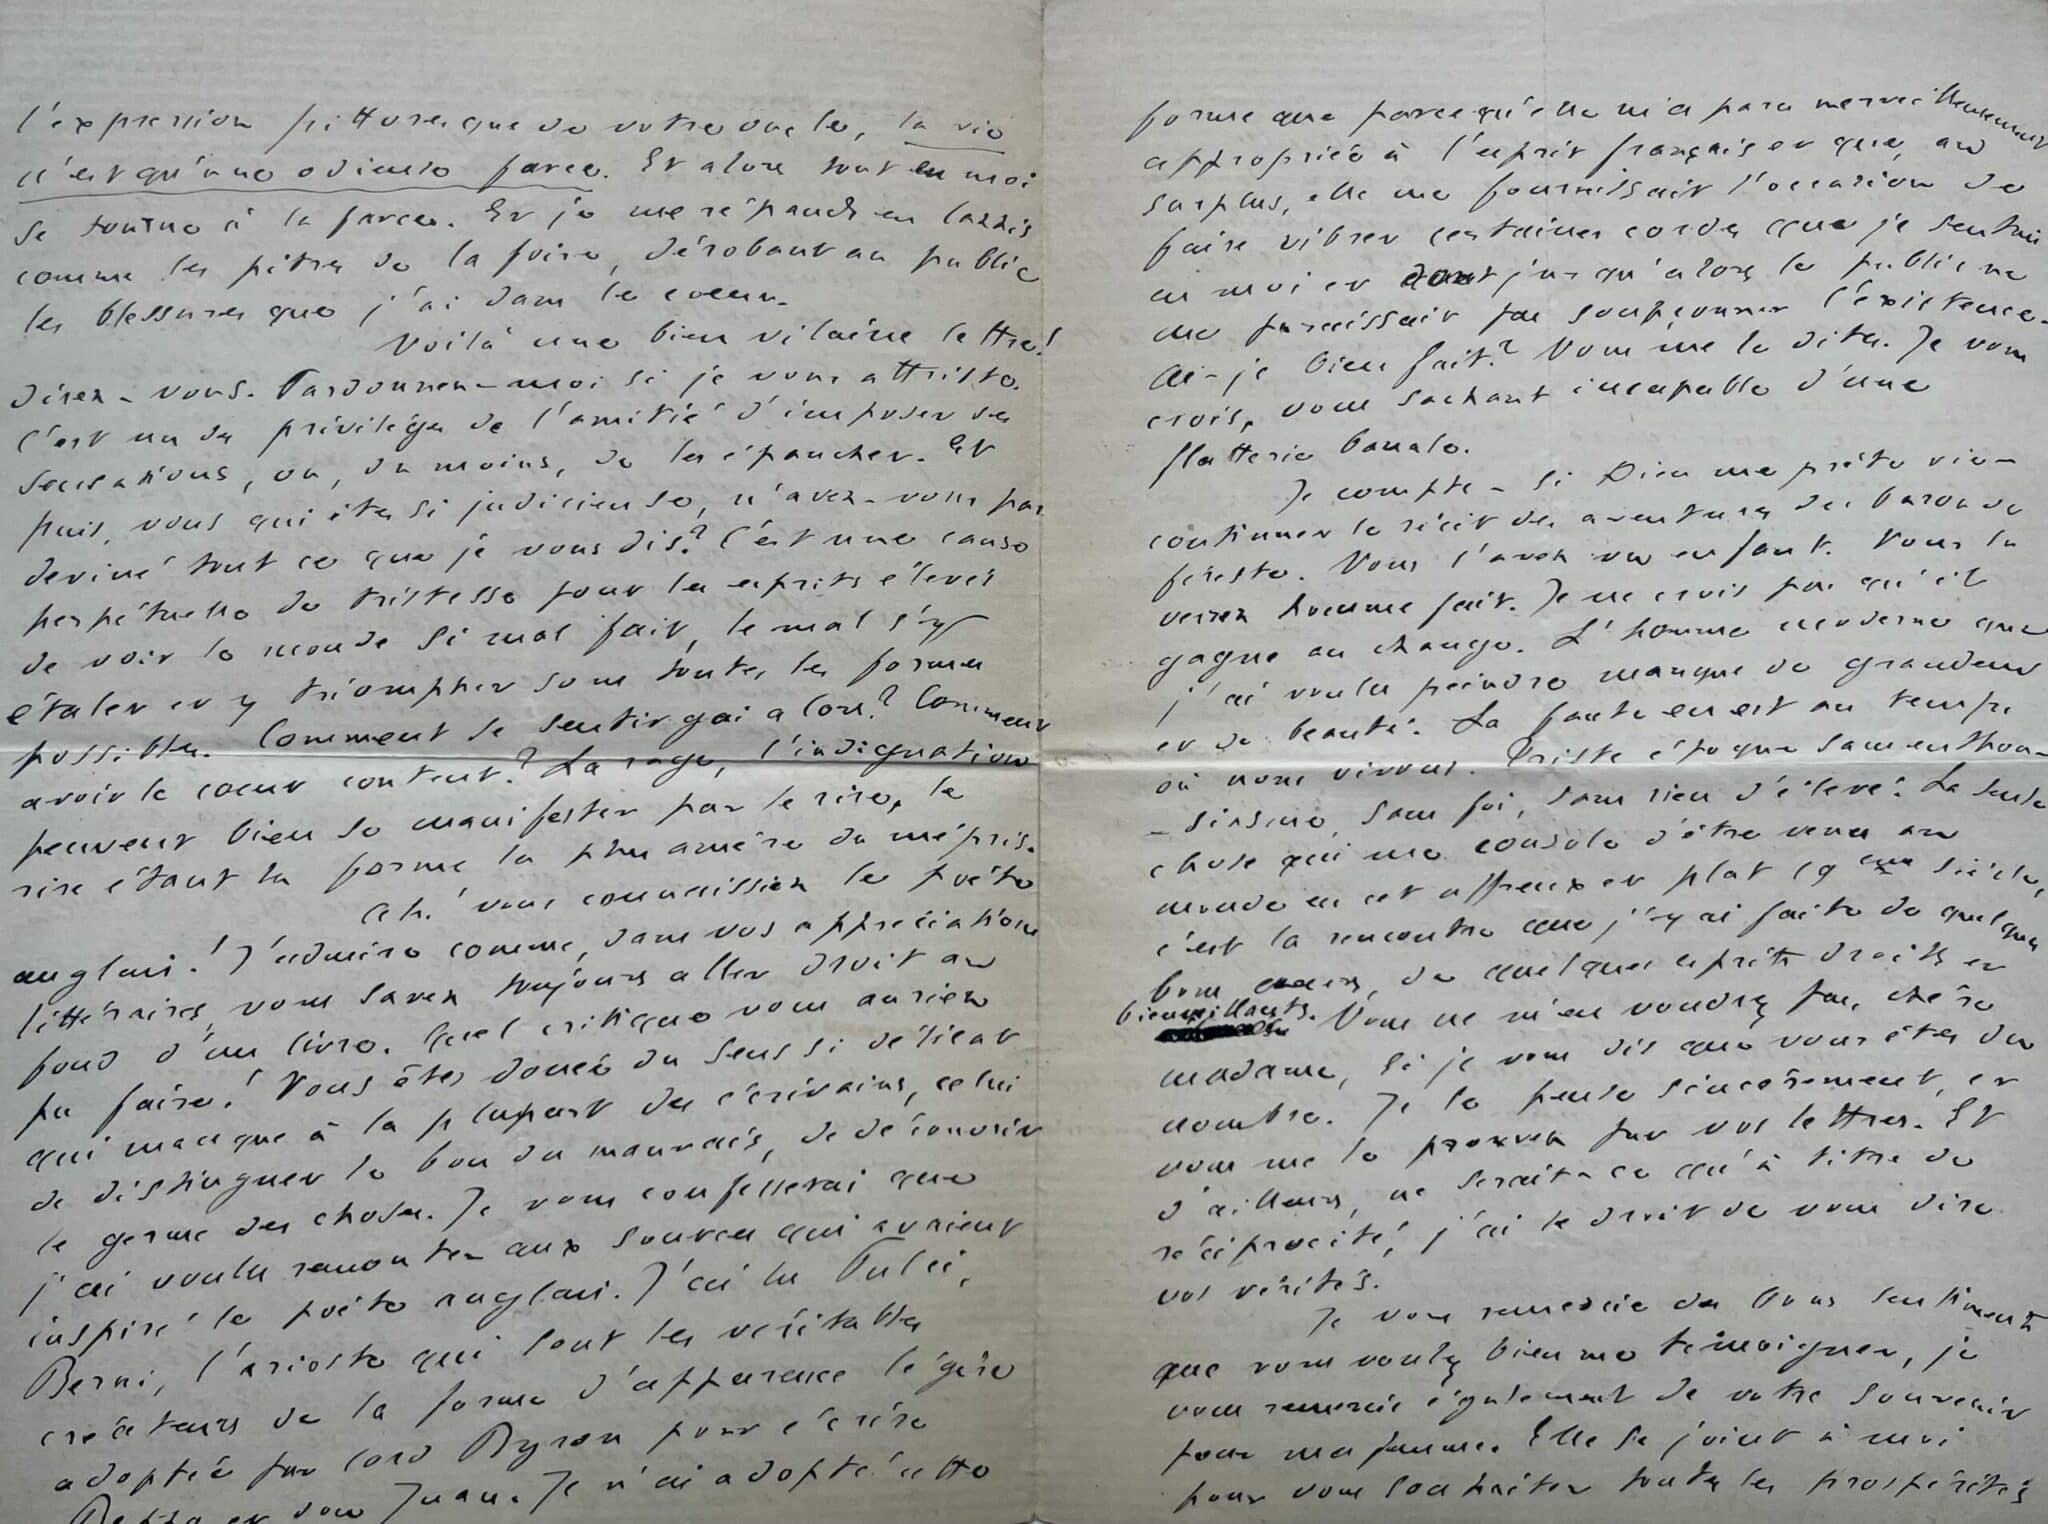 l'expression pittoresque de votre oncle, la vie
n'est qu'une odieuse farce. Et alors tout en moi
se tourne à la farce. Et je me répands en lazzis
comme les pitres de la foire, dérobant au public
les blessures que j'ai dans le coeur.
Voilà une bien vilaine lettre!
direz-vous. Pardonnez-moi si je vous attriste.
C'est un des privilèges de l'amitié d'imposer ses
sensations, ou, du moins, de les épancher. Et
puis, vous qui êtes si judicieuse, n'avez-vous pas
deviné tout ce que je vous dis? C'est une cause
perpétuelle de tristesse pour les esprits élevés
de voir le monde si mal fait, le mal s'y
étaler et y triompher sous toutes les formes
possibles. Comment se sentir gai alors? Comment
avoir le coeur content? La rage, l'indignation
peuvent bien se manifester par le rire, le
rire étant la forme la plus amère du mépris.
Ah! vous connaissiez le poète
anglais! J'admire comme, dans vos appréciations
littéraires, vous savez toujours aller droit au
fond d'un livre. Quel critique vous auriez
pu faire! Vous êtes douée du sens si délicat
qui manque à la plupart des écrivains, celui
de distinguer le bon du mauvais, de découvrir
le germe des choses. Je vous confesserai que
j'ai voulu remonter aux sources qui avaient
inspiré le poète anglais. J'ai lu Pulci,
Berni, l'arioste qui sont les véritables
créateurs de la forme d'apparence légère
adoptée par lord Byron pour écrire
Beppo et don Juan. Je n'ai adopté cette
forme que parcequ'elle m'a paru merveilleusement
appropriée à l'esprit français et que, au
surplus, elle me fournissait l'occasion de
faire vibrer certaines cordes que je sentais
en moi et dont jusqu'alors le public ne
me paraissait pas soupçonner l'existence.
Ai-je bien fait? Vous me le dites. Je vous
crois, vous sachant incapable d'une
flatterie banale.
Je compte - si Dieu me prête vie -
continuer le récit des aventures du baron de
féreste. Vous l'avez vu enfant. Vous le
verrez homme fait. Je ne crois pas qu'il
gagne au change. L'homme moderne que
j'ai voulu peindre manque de grandeur
et de beauté. La faute en est au temps
où nous vivons. Triste époque sans enthou-
-siasme, sans foi, sans rien d'élevé. La seule
chose qui me console d'être venu au
monde en cet affreux et plat 19eme siècle,
c'est la rencontre que j'y ai faite de quelques
bons coeurs, de quelques esprits droits et
bienveillants. Vous ne m'en voudrez pas, chère
madame, si je vous dis que vous êtes du
nombre. Je le pense sincèrement, et
vous me le prouvez par vos lettres. Et
d'ailleurs, ne serait-ce qu'à titre de
réciprocité, j'ai le droit de vous dire
vos vérités.
Je vous remercie des bons sentiments
que vous voulez bien me témoigner, je
vous remercie également de votre souvenir
pour ma femme. Elle se joint à moi
pour vous souhaiter toutes les prospérités